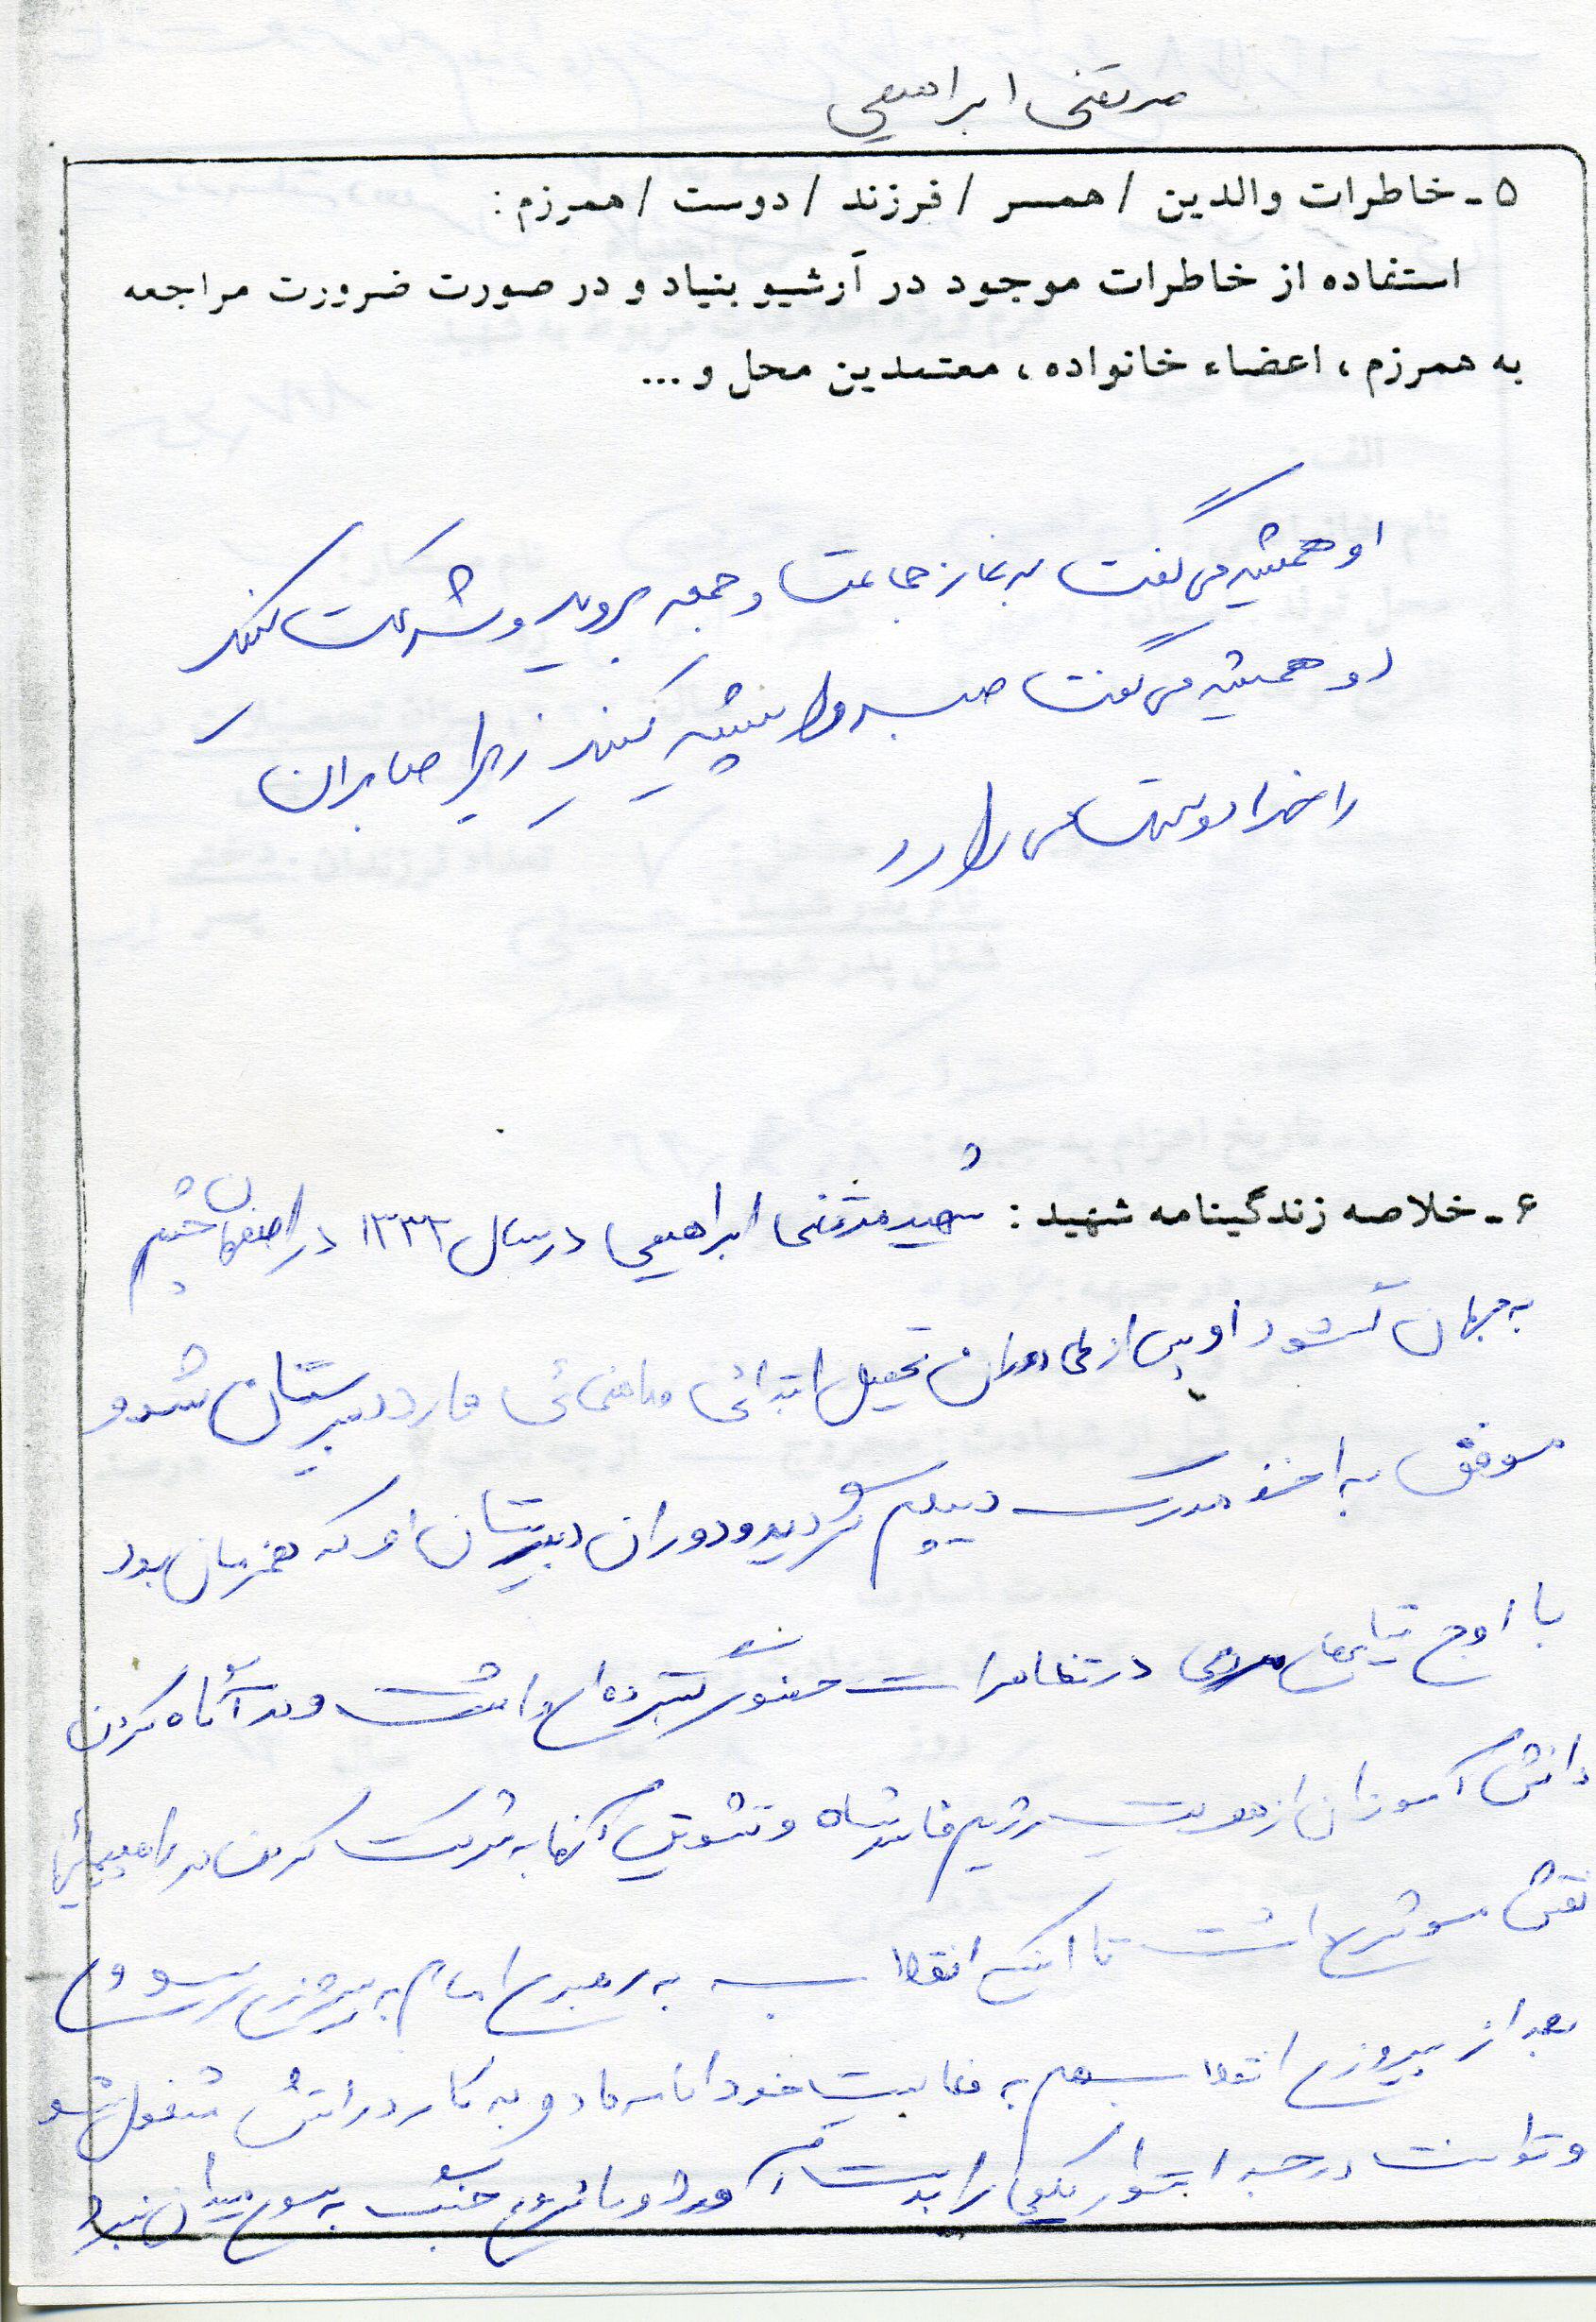 مرتضی ابراهیمی
۵ - خاطرات والدین / همسر / فرزند / دوست / همرزم :
استفاده از خاطرات موجود در آرشیو بنیاد و در صورت ضرورت مراجعه
به همرزم ، اعضاء خانواده ، معتمدین محل و ...
او همیشه می گفت به نماز جماعت و جمعه بروید و شرکت کنید
او همیشه می گفت صبر را پیشه کنید زیرا صابران
را خدا دوست می دارد
۶ - خلاصه زندگینامه شهید : شهید مرتضی ابراهیمی در سال ۱۳۳۳ در اصفهان چشم
به جهان گشود او پس از طی دوران تحصیل ابتدائی و راهنمائی وارد دبیرستان شد و
موفق به اخذ مدرک دیپلم گردید و دوران دبیرستان او که همزمان بود
با اوج مردمی در تظاهرات حضور گسترده ای داشت و در آگاه کردن
دانش آموزان از هویت رژیم فاسد شاه و تشویق آنها به شرکت کردن در راهپیمائی
نقش موثری داشت تا اینکه انقلاب به رهبری امام به پیروزی رسید و
بعد از پیروزی انقلاب هم به فعالیت خود ادامه داد و به کار در ارتش مشغول شد
و توانست درجه را بدست آورد و با شروع جنگ به سوی میدان نبرد